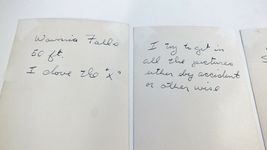 Falls
50 ft.
I dove the "X"
I try to get in
all the pictures
either by accident
or other wise